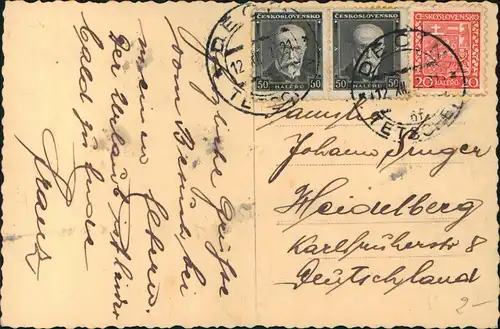 ČESKOSLOVENSKO
50 50
HALÉŘŮ
ČESKOSLOVENSKO
50 50
HALÉŘŮ
ČESKOSLOVENSKO
20 20
HALÉŘŮ
12 XII
TETSCHEN
Herzliche Grüße
vom Besuch bei
meinen Eltern.
Der Urlaub ist leider
bald zu Ende
Franz
Familie
Johann Singer
Heidelberg
Karlsruherstr 8
Deutschland
2-